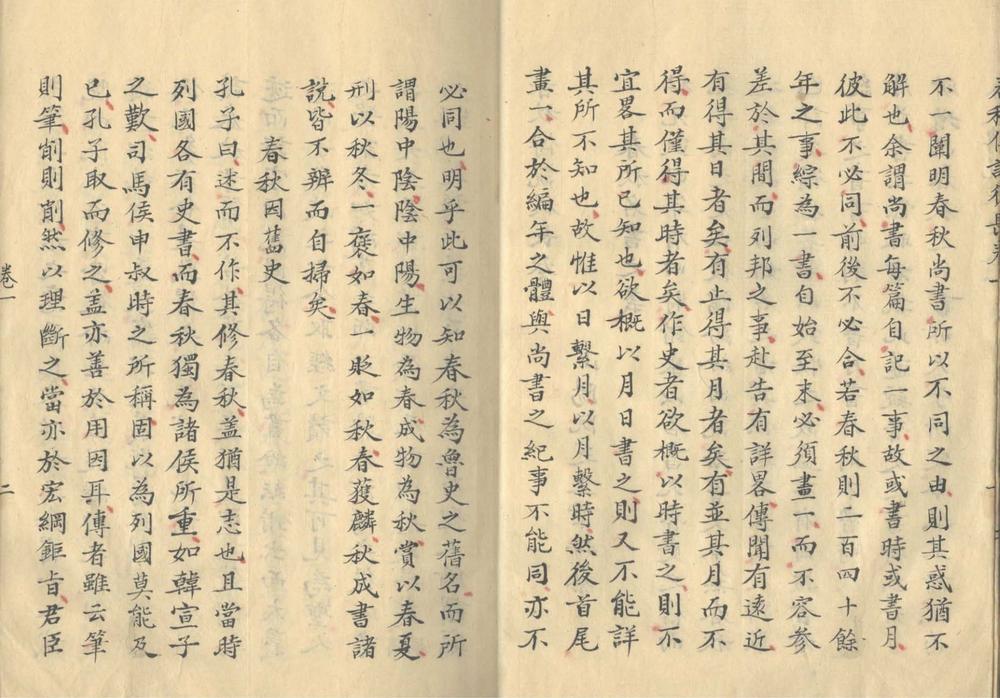 不一闡明春秋尚書所以不同之由則其惑猶不
解也余謂尚書每篇自記一事故或書時或書月
彼此不必同前後不必合若春秋則二百四十餘
年之事綜為一書自始至末必須畫一而不容參
差於其間而列邦之事赴告有詳畧傳聞有遠近
有得其日者矣有止得其月者矣有並其月而不
得而僅得其時者矣作史者欲概以時書之則不
宜畧其所已知也欲概以月日書之則又不能詳
其所不知也故惟以日繫月以月繫時然後首尾
畫一合於編年之體與尚書之紀事不能同亦不
必同也明乎此可以知春秋為魯史之舊名而所
謂陽中陰陰中陽生物為春成物為秋賞以春夏
刑以秋冬一褒如春一貶如秋春獲麟秋成書諸
說皆不辨而自掃矣
春秋因舊史
孔子曰述而不作其修春秋盖猶是志也且當時
列國各有史書而春秋獨為諸侯所重如韓宣子
之歎司馬侯申叔時之所稱固以為列國莫能及
已孔子取而修之盖亦善於用因耳傳者雖云筆
則筆削則削然以理斷之當亦於宏綱鉅旨君臣
卷一
二